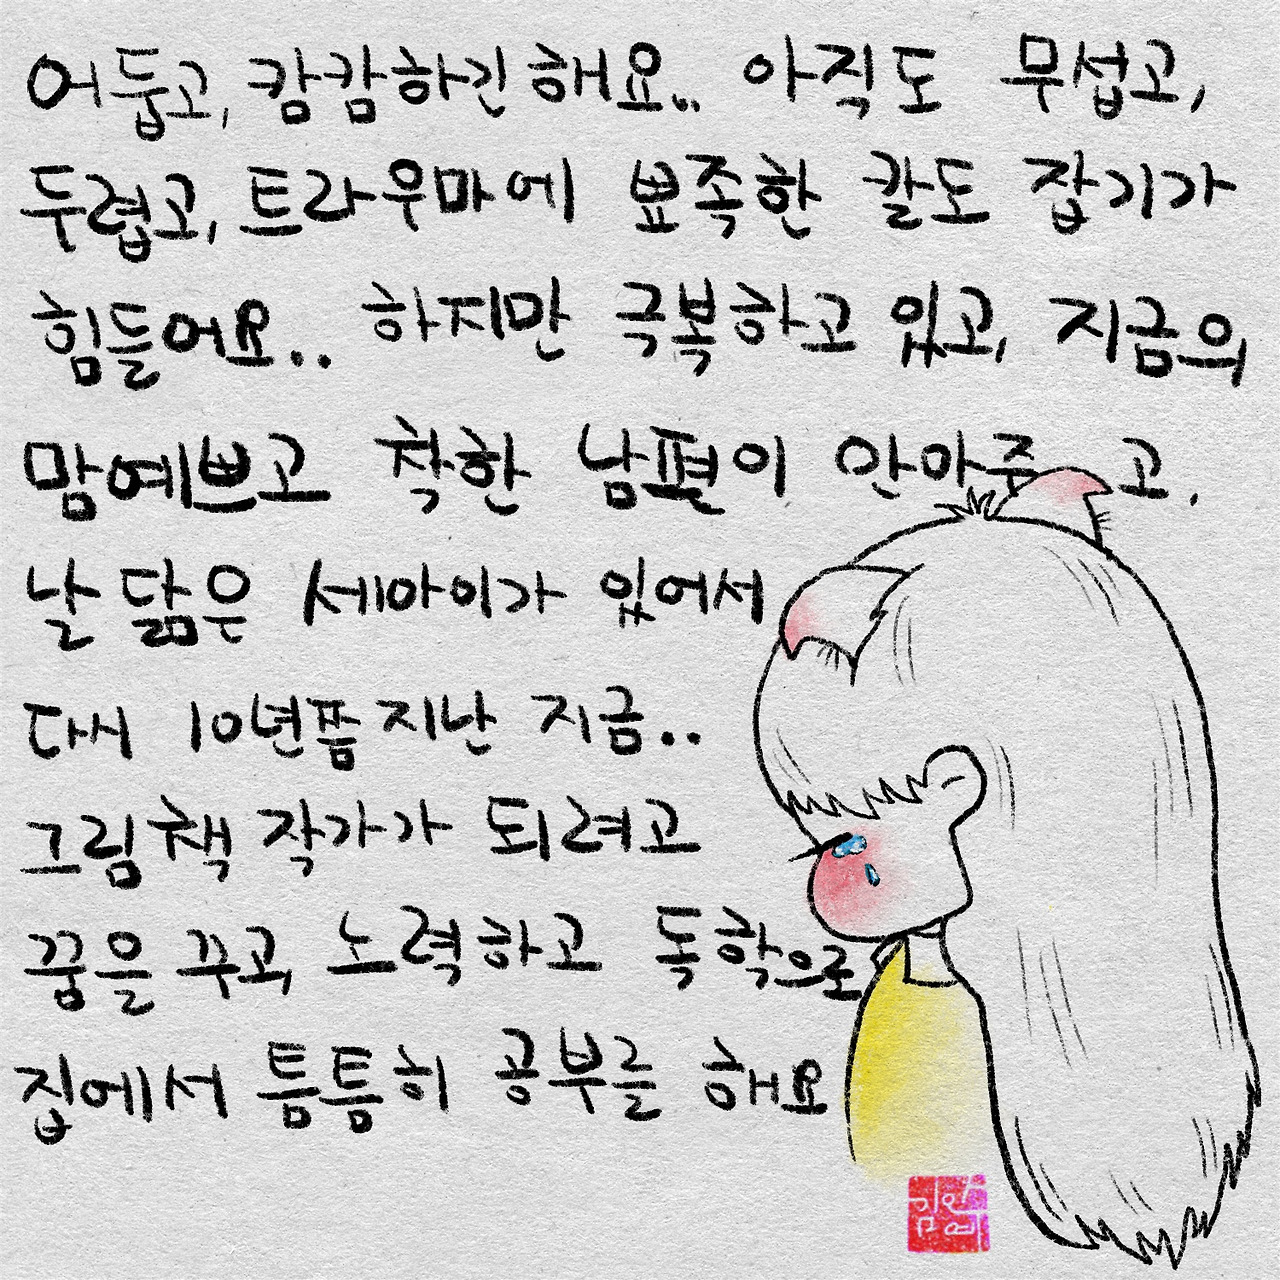 어둡고, 캄캄하긴 해요.. 아직도 무섭고,
두렵고, 트라우마에 뾰족한 칼도 잡기가
힘들어요.. 하지만 극복하고 있고, 지금의
맘예쁘고 착한 남편이 안아주고,
날 닮은 세아이가 있어서
다시 10년쯤 지난 지금..
그림책 작가가 되려고
꿈을 꾸고, 노력하고 독학으로
집에서 틈틈히 공부를 해요